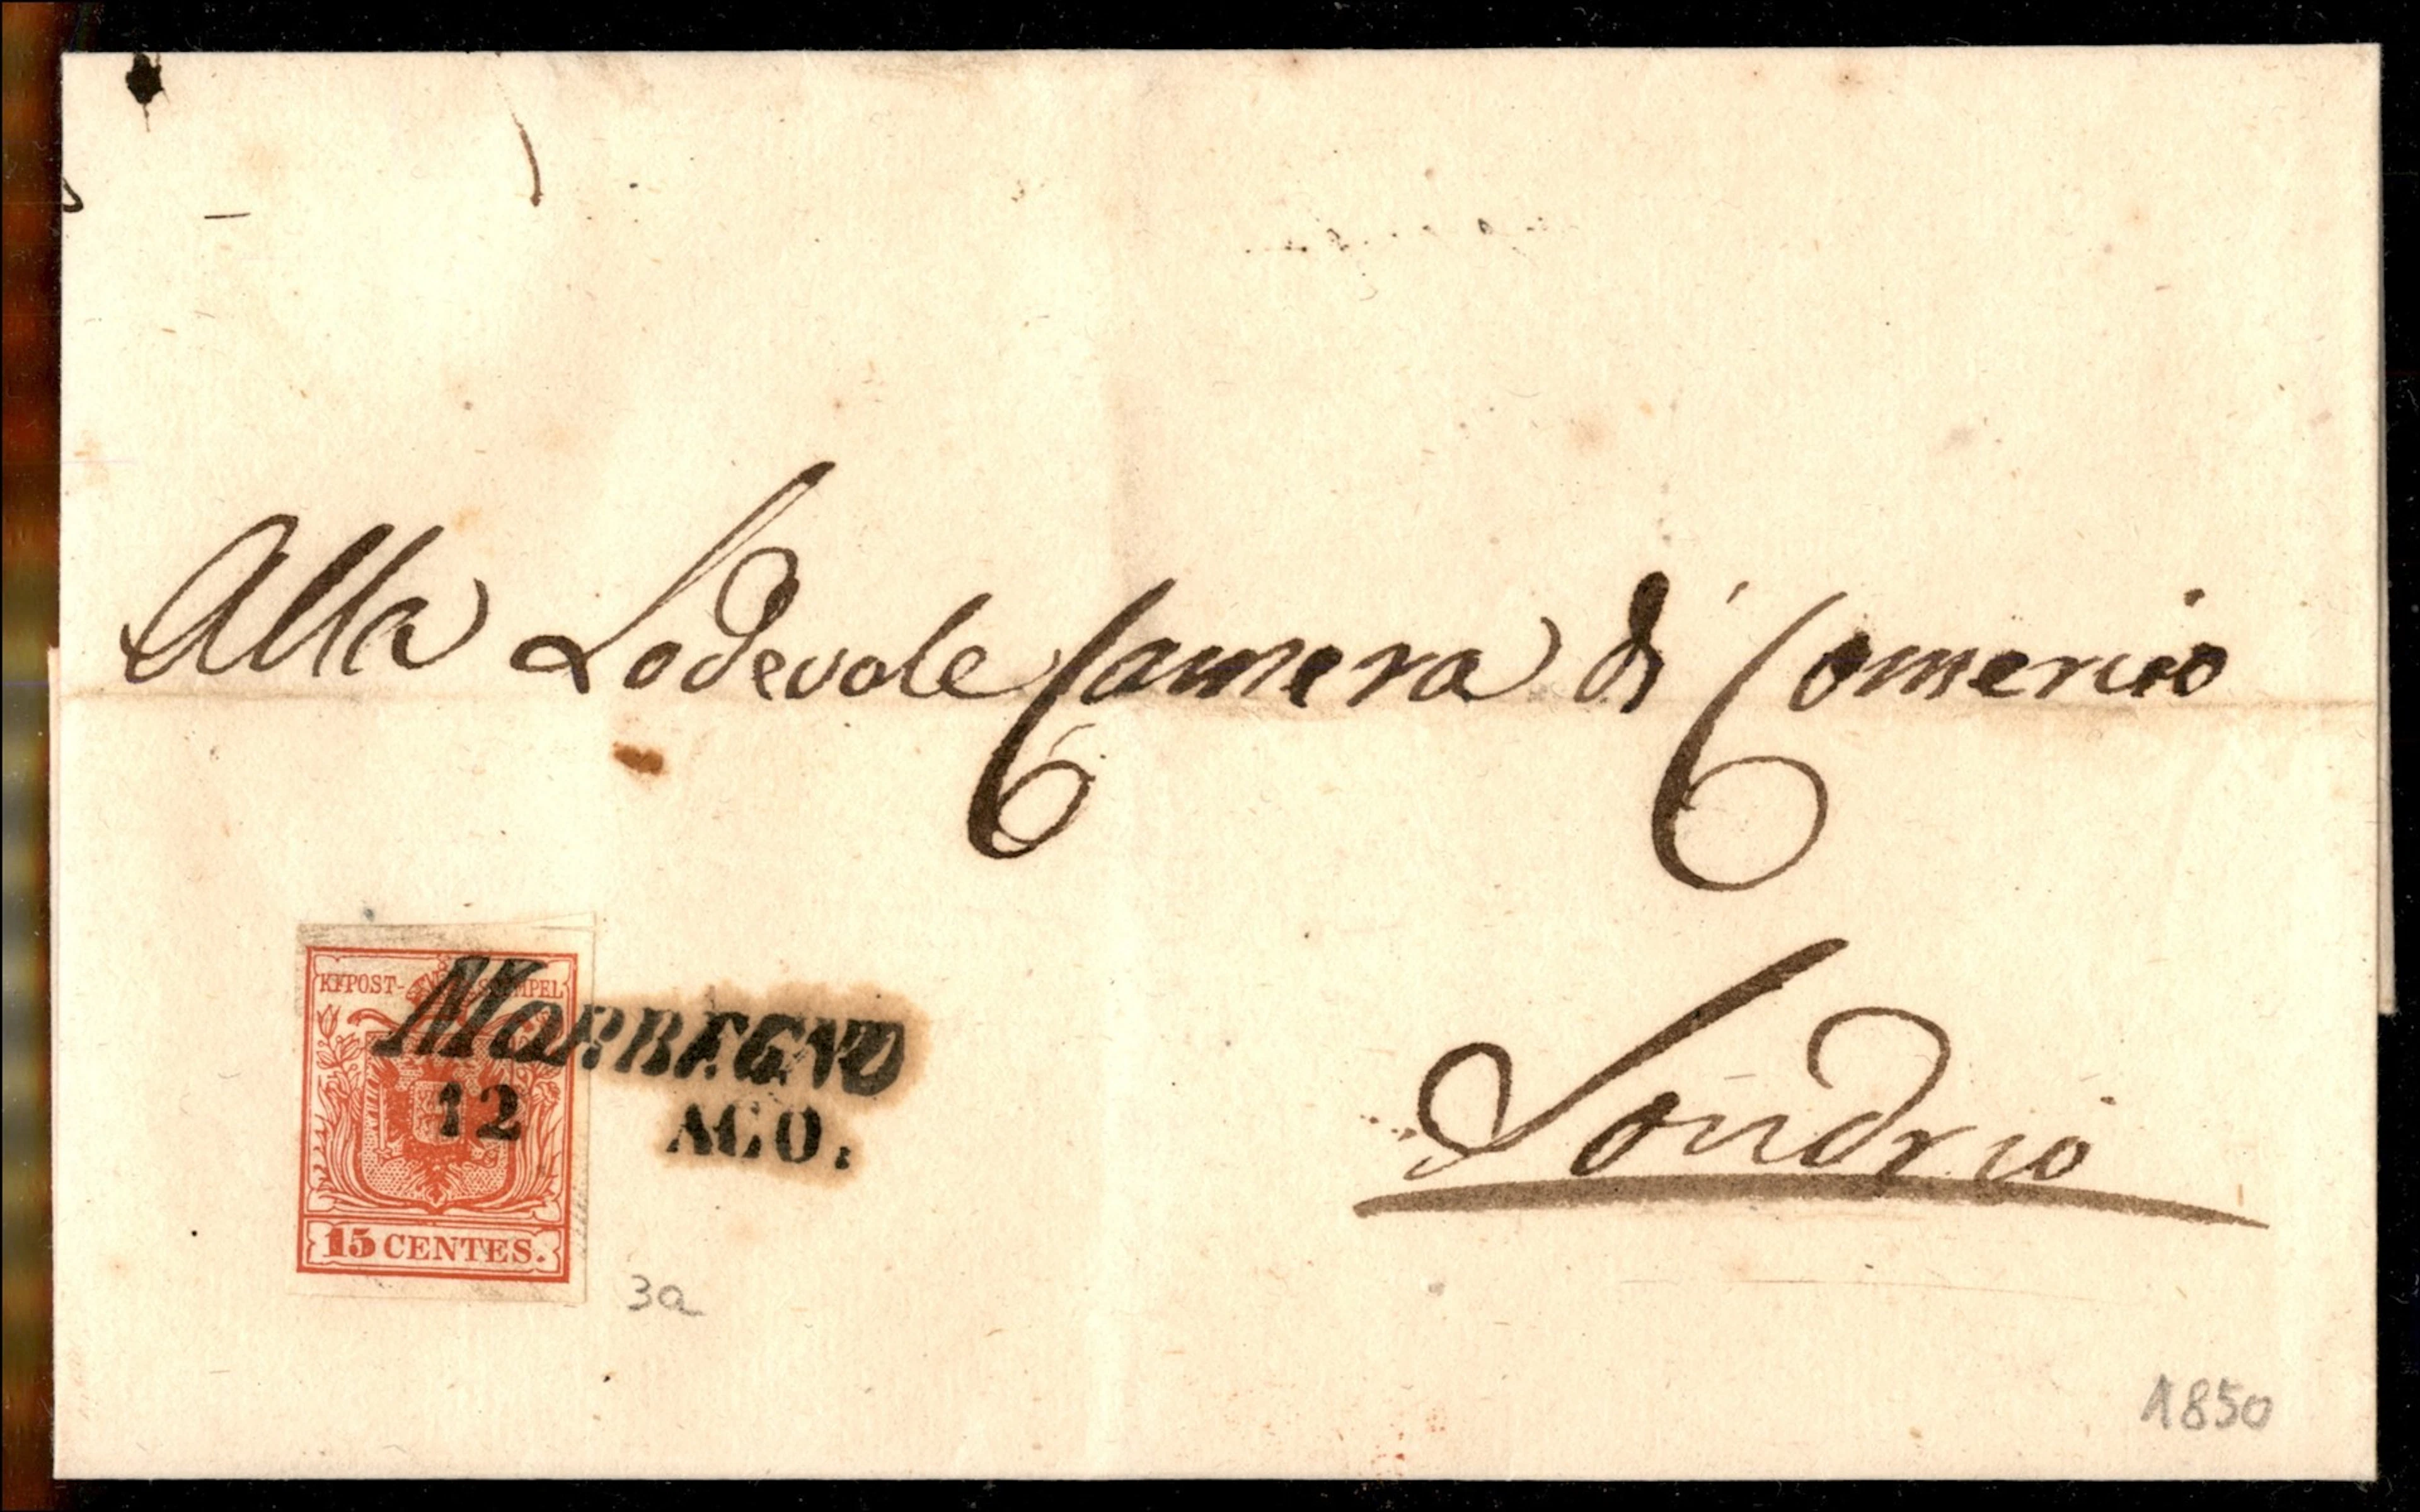 Alla Lodevole Camera di Comercio
Sondrio
KK POST-STEMPEL
MORBEGNO
12 AGO.
15 CENTES.
3a
1850